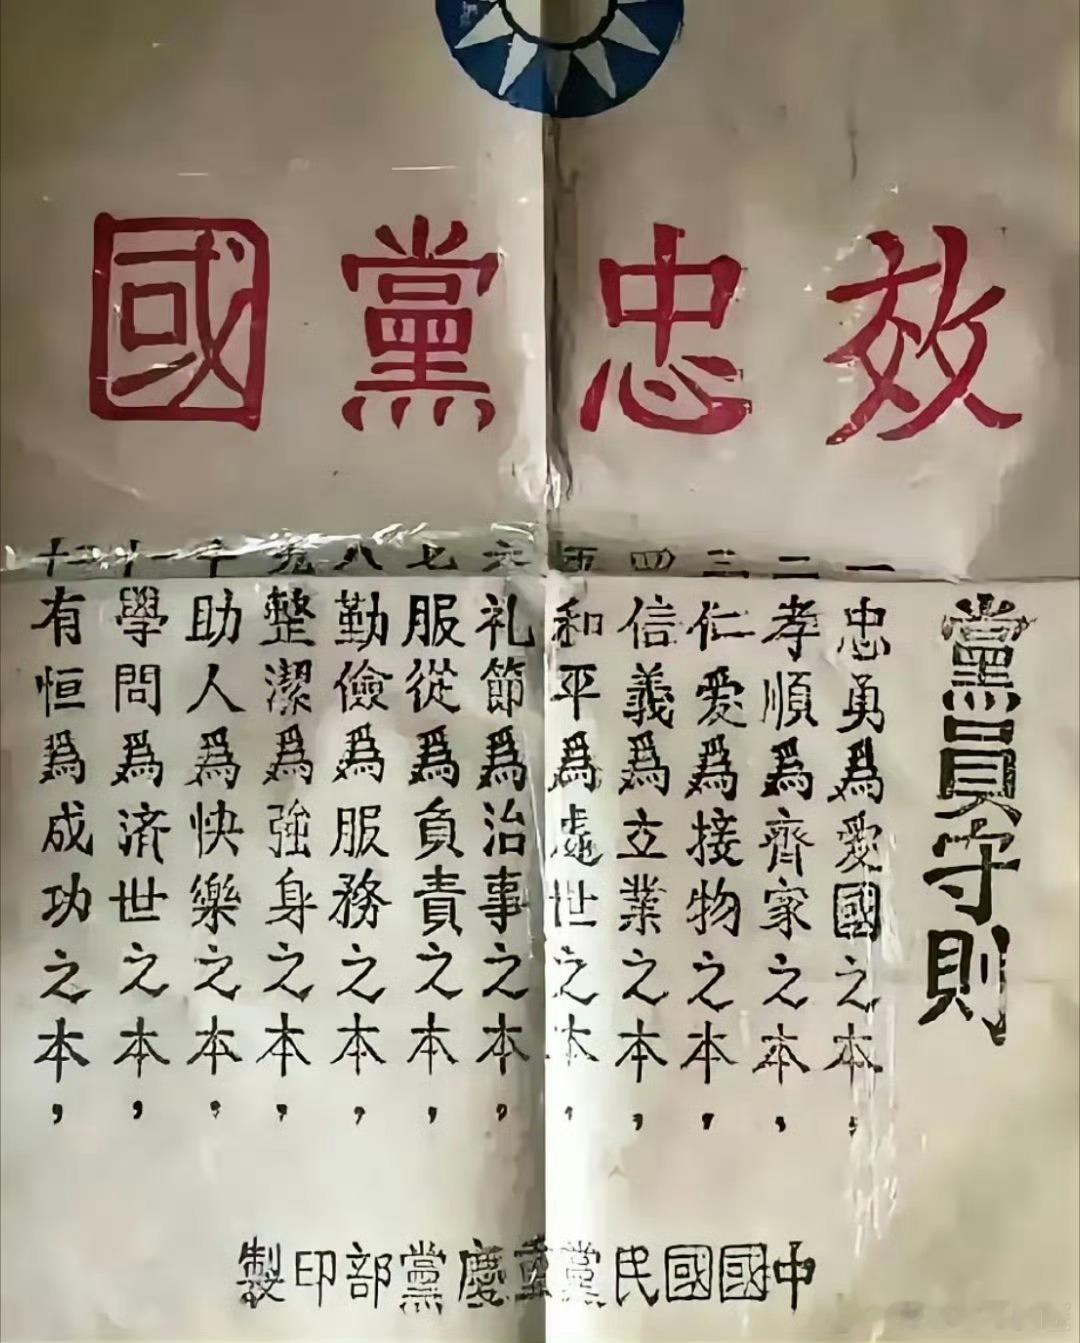 效忠黨國
黨員守則
一 忠勇爲愛國之本，
二 孝順爲齊家之本，
三 仁愛爲接物之本，
四 信義爲立業之本，
五 和平爲處世之本，
六 礼節爲治事之本，
七 服從爲負責之本，
八 勤儉爲服務之本，
九 整潔爲強身之本，
十 助人爲快樂之本，
十一 學問爲済世之本，
十二 有恒爲成功之本，
中國國民黨重慶黨部印製